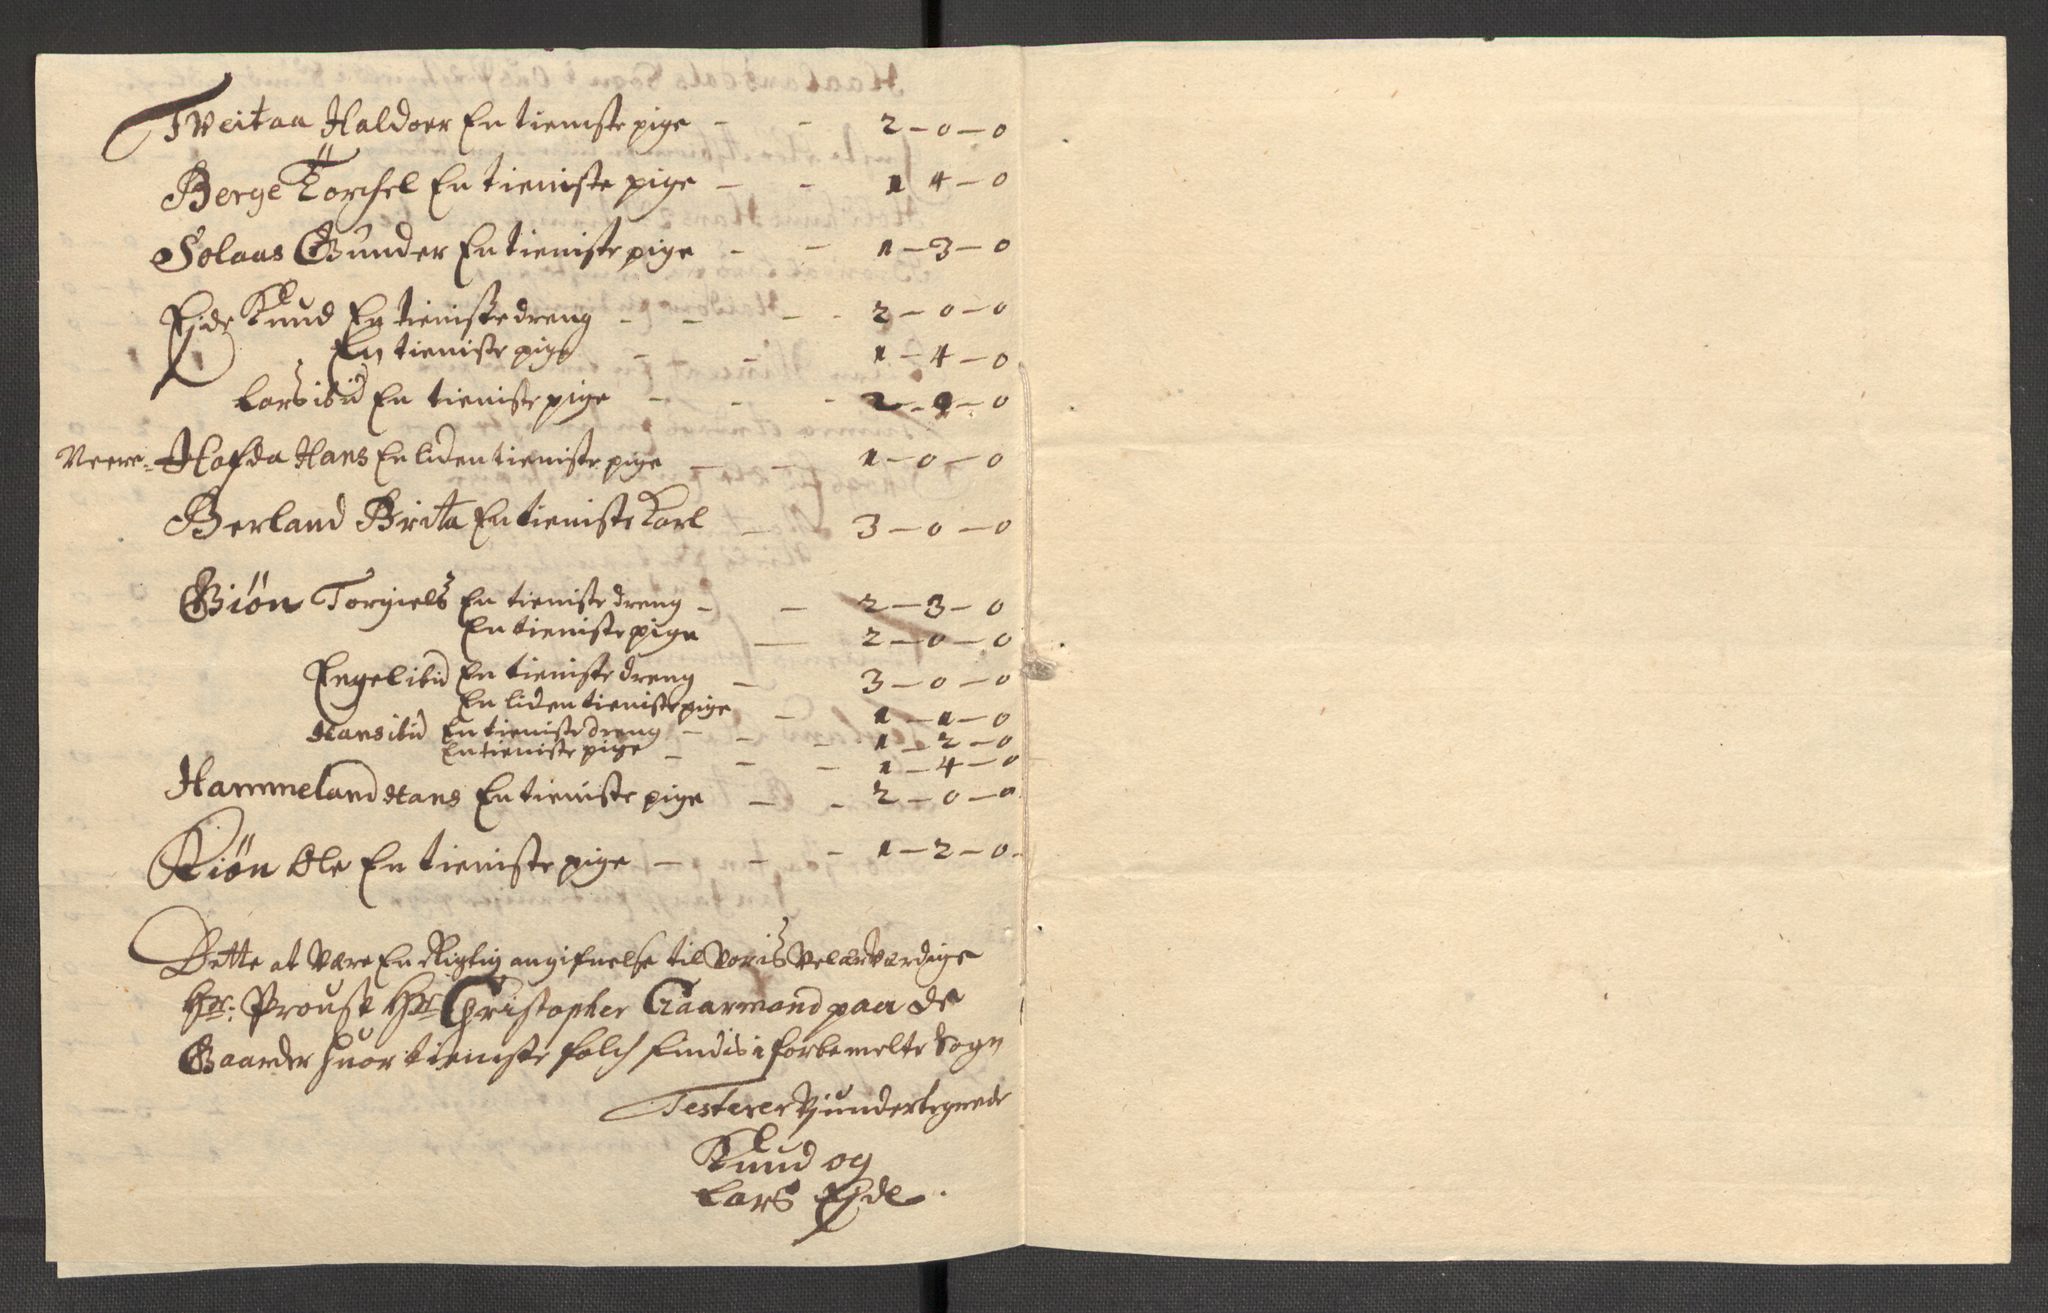 Tveitaa Haldoer En tieniste pige - - 2 - 0 - 0
Berge Torchel En tieniste pige - - 1 4 - 0
Solaas Gunder En tieniste pige - - 1 - 3 - 0
Ejde Knud En tieniste dreng - - - - 2 - 0 - 0
En tieniste pige - - 1 - 4 - 0
Lars ibid En tieniste pige - - - 2 - 0 - 0
Neere- Hafda Hans En liden tieniste pige - - 1 - 0 - 0
Berland Brita En tieniste Karl - 3 - 0 - 0
Giøn Torgiels En tieniste dreng - - 2 - 3 - 0
En tieniste pige - 2 - 0 - 0
Engel ibid En tieniste dreng - 3 - 0 - 0
En liden tieniste pige - 1 - 1 - 0
Hans ibid En tieniste dreng - - - 1 - 2 - 0
En tieniste pige - - - 1 - 4 - 0
Hammeland Hans En tieniste pige - - 2 - 0 - 0
Kiøn Ole En tieniste pige - - - 1 - 2 - 0
Dette at være En Rigtig angifuelse til Voris Velærværdige
Hr: Proust Hr Christopher Gaarmand paa de
Gaarder huor tieniste folch findis i forbemelte Sogn
Testerer Vj undertegnede
Knud og
Lars Ejde.